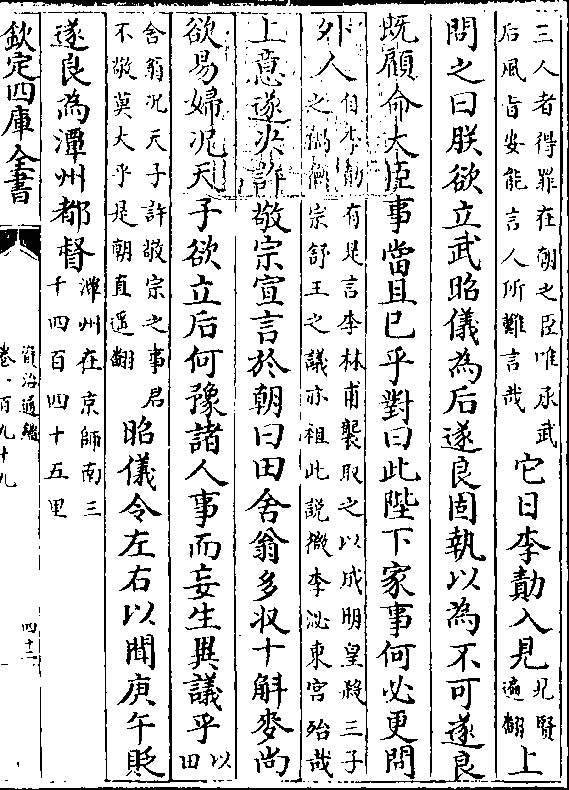 三人者得罪在朝之臣唯承武
后風旨安能言人所難言哉
它日李勣入見
見賢
遍翻
上
問之曰朕欲立武昭儀為后遂良固執以為不可遂良
既顧命大臣事當且已乎對曰此陛下家事何必更問
外人
自李勣有是言李林甫襲取之以成明皇殺三子
之禍德宗舒王之議亦祖此說微李泌東宮殆哉
上意遂決許敬宗宣言於朝曰田舍翁多収十斛麥尚
欲易婦况天子欲立后何豫諸人事而妄生異議乎
以
田
舍翁况天子許敬宗之事君
不敬莫大乎是朝直遥翻
昭儀令左右以聞庚午貶
遂良為潭州都督
潭州在京師南三
千四百四十五里
欽定四庫全書
資治通鑑
卷一百九十九
四十二